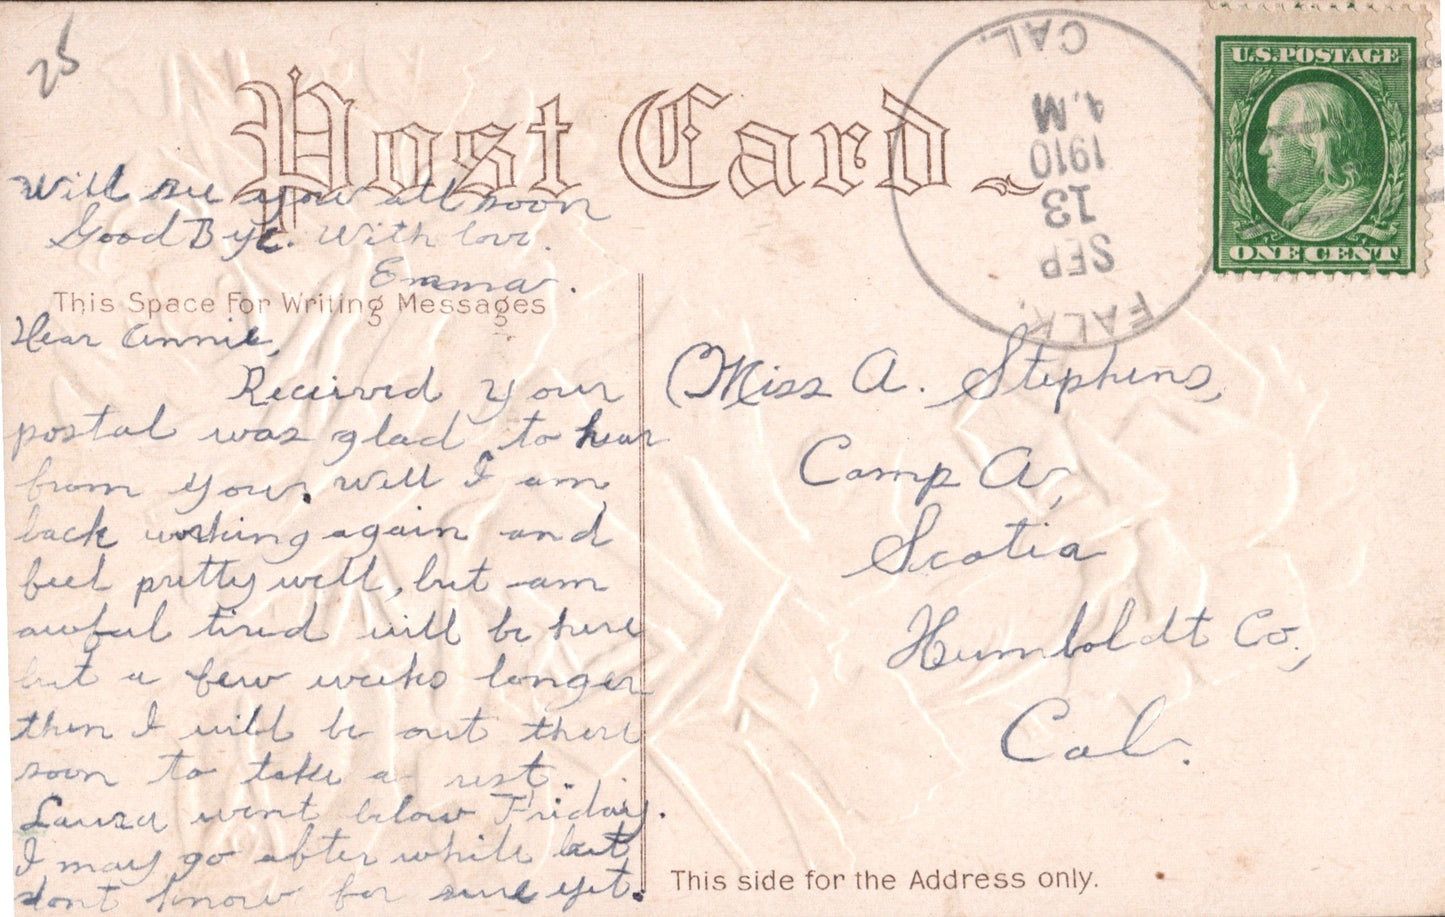 25
Post Card
Will see you all soon
Good Bye. With love.
Emma.
This Space For Writing Messages
Dear Annie,
Received your
postal was glad to hear
from you. Well I am
back working again and
feel pretty well, but am
awful tired will be here
but a few weeks longer
then I will be out there
soon to take a rest.
Laura went below Friday.
I may go after while but
dont know for sure yet.
FALK.
SEP
13
1910
4.M
CAL.
U.S. POSTAGE
ONE CENT
Miss A. Stephens,
Camp A,
Scotia
Humboldt Co.,
Cal.
This side for the Address only.